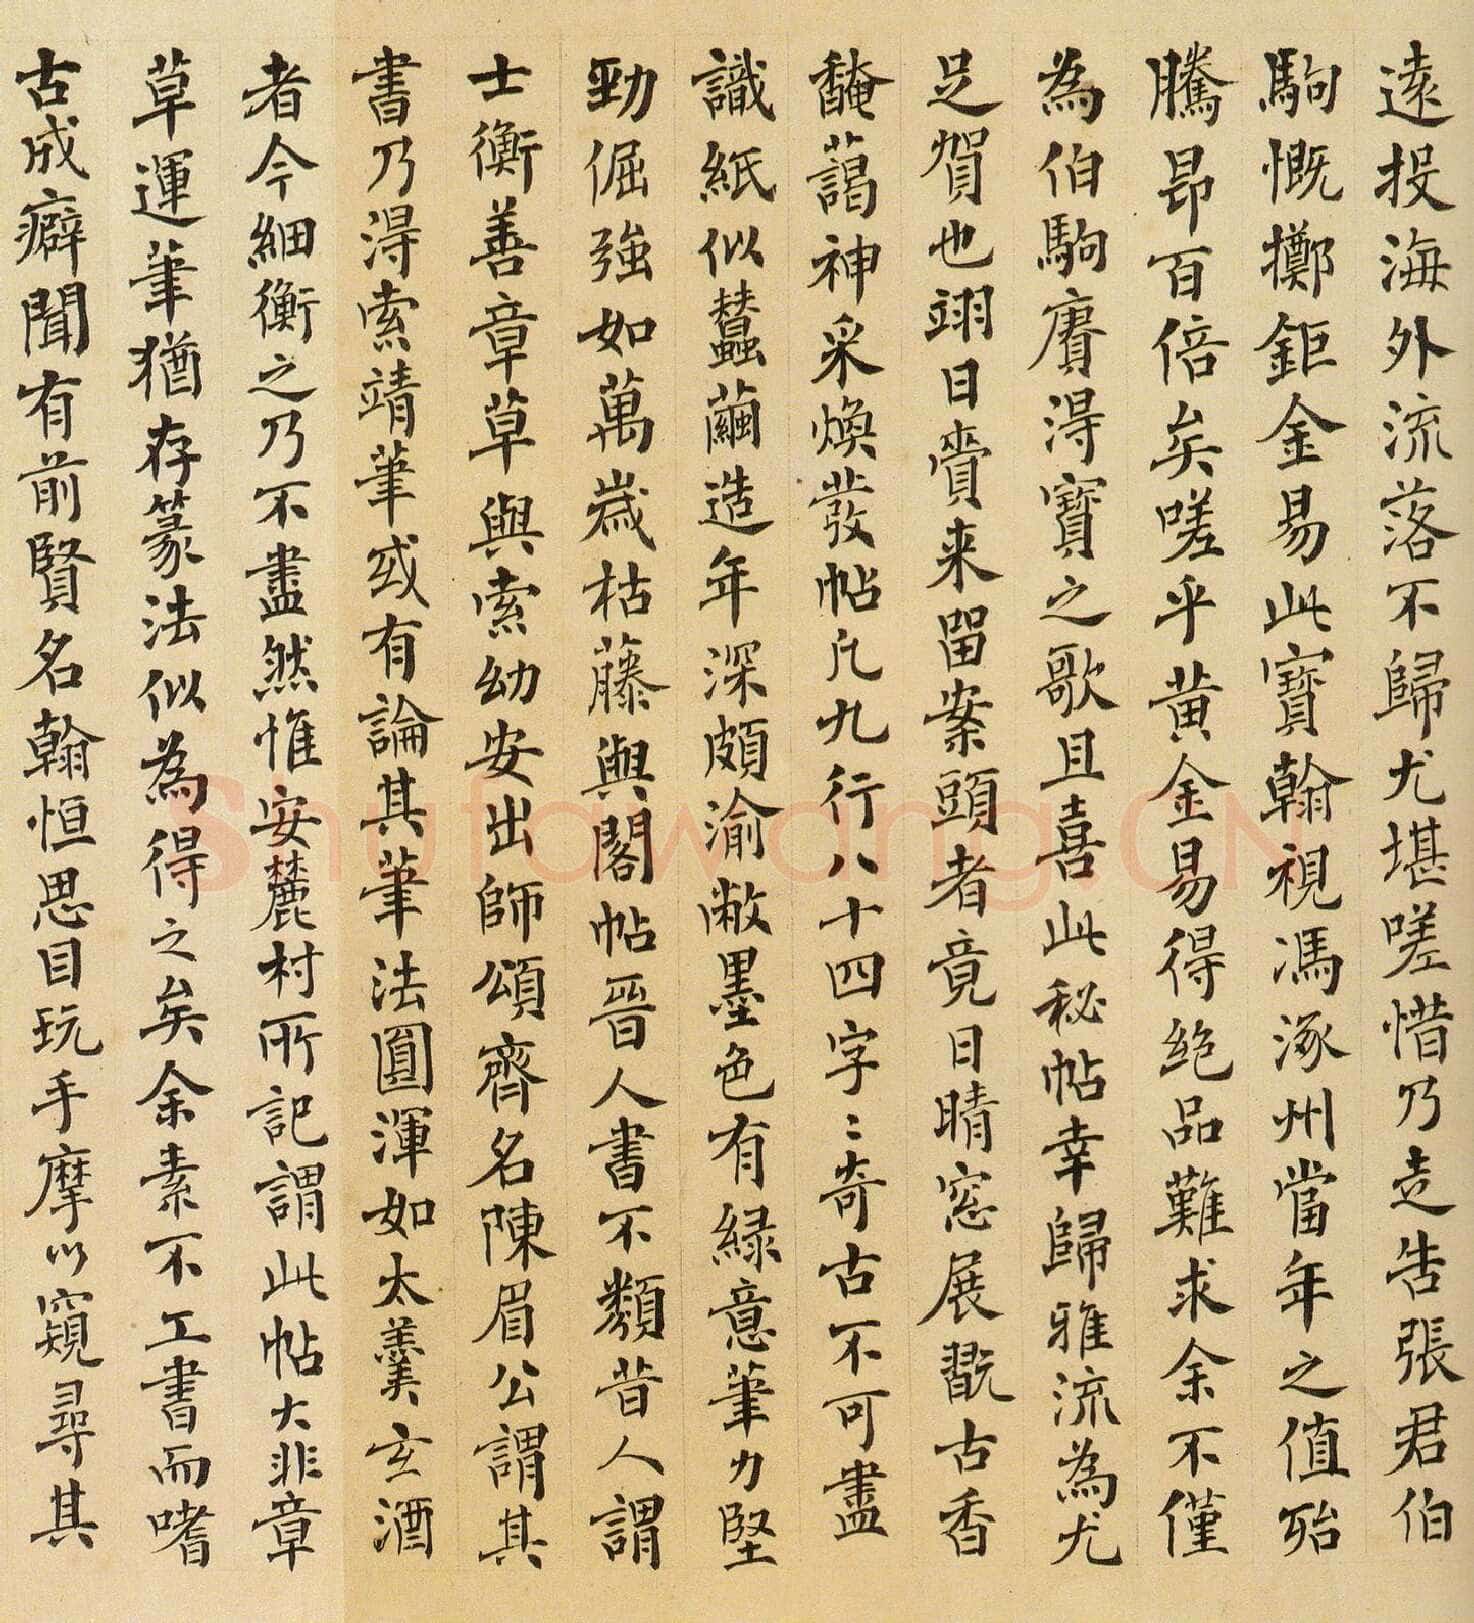 遠投海外流落不歸尤堪嗟惜乃走告張君伯
駒慨擲鉅金易此寶翰視馮涿州當年之值殆
騰昂百倍矣嗟乎黃金易得絕品難求余不僅
為伯駒賡得寶之歌且喜此秘帖幸歸雅流為尤
足賀也翊日賫来留案頭者竟日晴窓展翫古香
馣藹神采煥發帖凡九行八十四字〻奇古不可盡
識紙似蠶繭造年深頗渝敝墨色有緑意筆力堅
勁倔強如萬嵗枯藤與閣帖晉人書不類昔人謂
士衡善章草與索幼安出師頌齊名陳眉公謂其
書乃得索靖筆或有論其筆法圓渾如太羹玄酒
者今細衡之乃不盡然惟安麓村所記謂此帖大非章
草運筆猶存篆法似為得之矣余素不工書而嗜
古成癖聞有前賢名翰恒思目玩手摩以窺尋其
Shufawang.CN